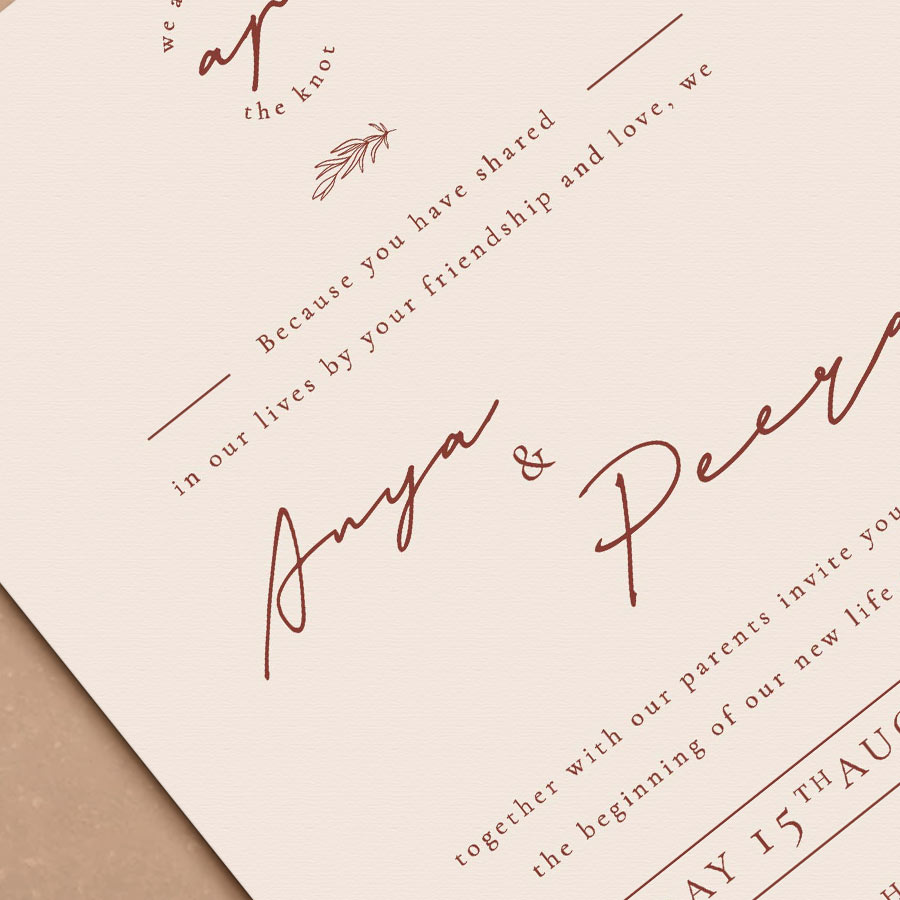 we a
ap
the knot
Because you have shared
in our lives by your friendship and love, we
Anya & Peer
together with our parents invite you
the beginning of our new life
AY 15TH AUG